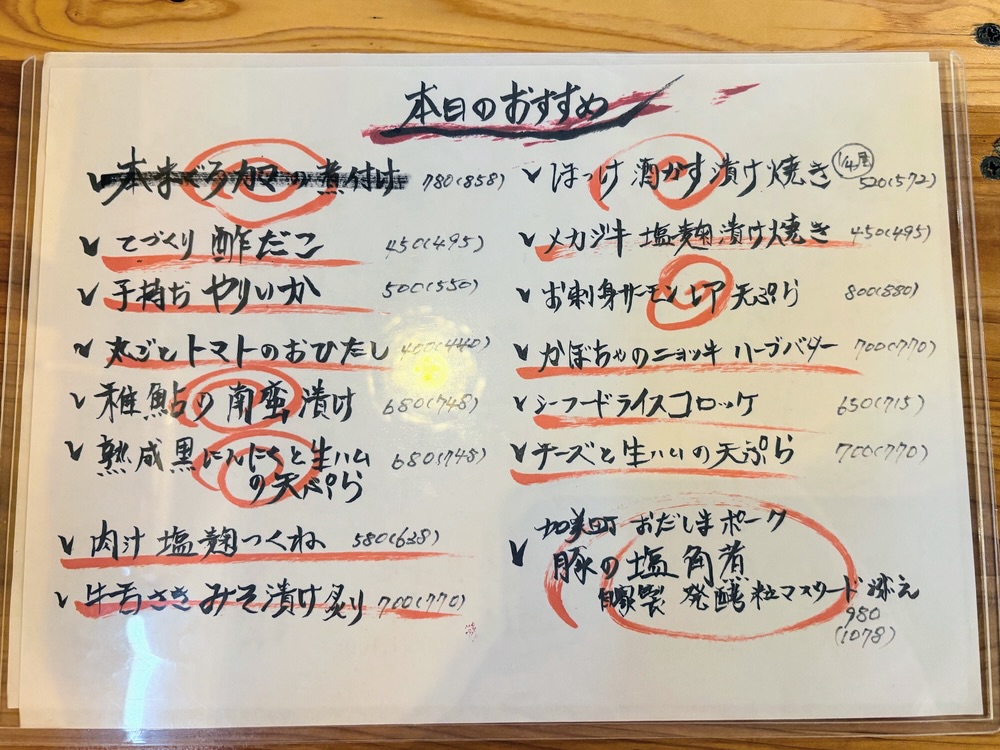 本日のおすすめ
本まぐろカマの煮付け 780(858)
てづくり酢だこ 450(495)
子持ちやりいか 500(550)
丸ごとトマトのおひたし 400(440)
稚鮎の南蛮漬け 680(748)
熟成黒にんにくと生ハム 680(748)
の天ぷら
肉汁塩麹つくね 580(638)
牛舌さきみそ漬け炙り 700(770)
ほっけ酒かす漬け焼き 1/4尾 520(572)
メカジキ塩麹漬け焼き 450(495)
お刺身サーモンレア天ぷら 800(880)
かぼちゃのニョッキ ハーブバター 700(770)
シーフードライスコロッケ 650(715)
チーズと生ハムの天ぷら 700(770)
加美町 おだしまポーク
豚の塩角煮
自家製 発酵粒マスタード添え
980
(1078)